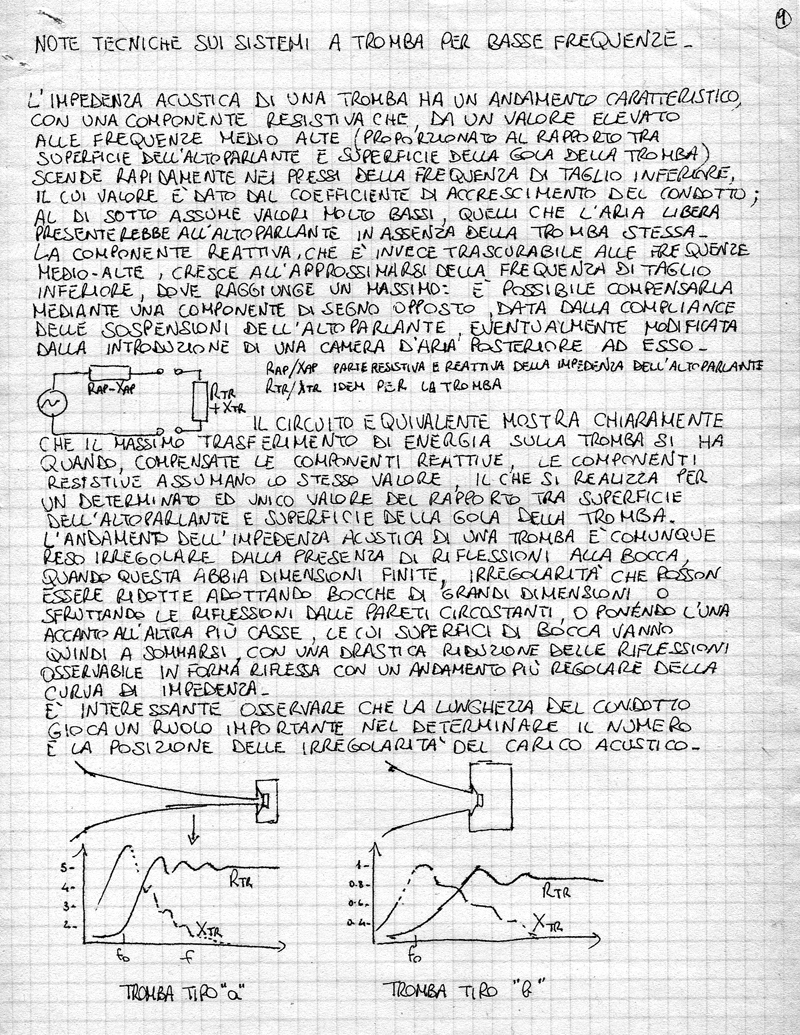 9
NOTE TECNICHE SUI SISTEMI A TROMBA PER BASSE FREQUENZE_
L'IMPEDENZA ACUSTICA DI UNA TROMBA HA UN ANDAMENTO CARATTERISTICO,
CON UNA COMPONENTE RESISTIVA CHE, DA UN VALORE ELEVATO
ALLE FREQUENZE MEDIO ALTE (PROPORZIONATO AL RAPPORTO TRA
SUPERFICIE DELL'ALTOPARLANTE E SUPERFICIE DELLA GOLA DELLA TROMBA)
SCENDE RAPIDAMENTE NEI PRESSI DELLA FREQUENZA DI TAGLIO INFERIORE,
IL CUI VALORE E' DATO DAL COEFFICIENTE DI ACCRESCIMENTO DEL CONDOTTO;
AL DI SOTTO ASSUME VALORI MOLTO BASSI, QUELLI CHE L'ARIA LIBERA
PRESENTEREBBE ALL'ALTOPARLANTE IN ASSENZA DELLA TROMBA STESSA_
LA COMPONENTE REATTIVA, CHE E' INVECE TRASCURABILE ALLE FREQUENZE
MEDIO-ALTE, CRESCE ALL'APPROSSIMARSI DELLA FREQUENZA DI TAGLIO
INFERIORE, DOVE RAGGIUNGE UN MASSIMO: E' POSSIBILE COMPENSARLA
MEDIANTE UNA COMPONENTE DI SEGNO OPPOSTO, DATA DALLA COMPLIANCE
DELLE SOSPENSIONI DELL'ALTOPARLANTE, EVENTUALMENTE MODIFICATA
DALLA INTRODUZIONE DI UNA CAMERA D'ARIA POSTERIORE AD ESSO_
RAP-XAP
RTR
+XTR
RAP/XAP PARTE RESISTIVA E REATTIVA DELLA IMPEDENZA DELL'ALTOPARLANTE
RTR/XTR IDEM PER LA TROMBA
IL CIRCUITO EQUIVALENTE MOSTRA CHIARAMENTE
CHE IL MASSIMO TRASFERIMENTO DI ENERGIA SULLA TROMBA SI HA
QUANDO, COMPENSATE LE COMPONENTI REATTIVE, LE COMPONENTI
RESISTIVE ASSUMANO LO STESSO VALORE, IL CHE SI REALIZZA PER
UN DETERMINATO ED UNICO VALORE DEL RAPPORTO TRA SUPERFICIE
DELL'ALTOPARLANTE E SUPERFICIE DELLA GOLA DELLA TROMBA_
L'ANDAMENTO DELL'IMPEDENZA ACUSTICA DI UNA TROMBA E' COMUNQUE
RESO IRREGOLARE DALLA PRESENZA DI RIFLESSIONI ALLA BOCCA,
QUANDO QUESTA ABBIA DIMENSIONI FINITE, IRREGOLARITA' CHE POSSON
ESSERE RIDOTTE ADOTTANDO BOCCHE DI GRANDI DIMENSIONI O
SFRUTTANDO LE RIFLESSIONI DALLE PARETI CIRCOSTANTI, O PONENDO L'UNA
ACCANTO ALL'ALTRA PIÙ CASSE, LE CUI SUPERFICI DI BOCCA VANNO
QUINDI A SOMMARSI, CON UNA DRASTICA RIDUZIONE DELLE RIFLESSIONI
OSSERVABILE IN FORMA RIFLESSA CON UN ANDAMENTO PIÙ REGOLARE DELLA
CURVA DI IMPEDENZA_
E' INTERESSANTE OSSERVARE CHE LA LUNGHEZZA DEL CONDOTTO
GIOCA UN RUOLO IMPORTANTE NEL DETERMINARE IL NUMERO
E LA POSIZIONE DELLE IRREGOLARITA' DEL CARICO ACUSTICO_
5-
4-
3-
2-
RTR
XTR
fo
f
TROMBA TIPO "a"
1-
0.8-
0.6-
0.4-
RTR
XTR
fo
TROMBA TIPO "b"